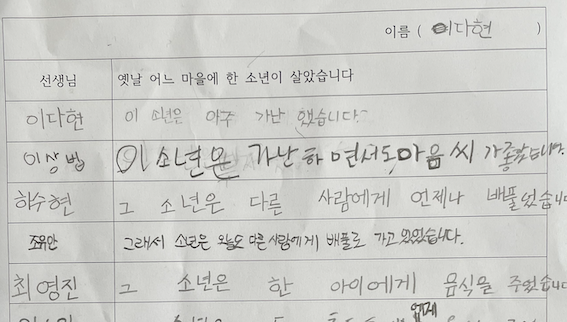 이름 ( 이다현 )
선생님 옛날 어느 마을에 한 소년이 살았습니다
이다현 이 소년은 아주 가난 했습니다.
이상법 이 소년은 가난하면서도 마음씨가 좋았습니다.
하수현 그 소년은 다른 사람에게 언제나 배풀었습니다
조유안 그래서 소년은 오늘도 다른사람에게 배풀로 가고 있었습니다.
최영진 그 소년은 한 아이에게 음식을 주었습니다
언제